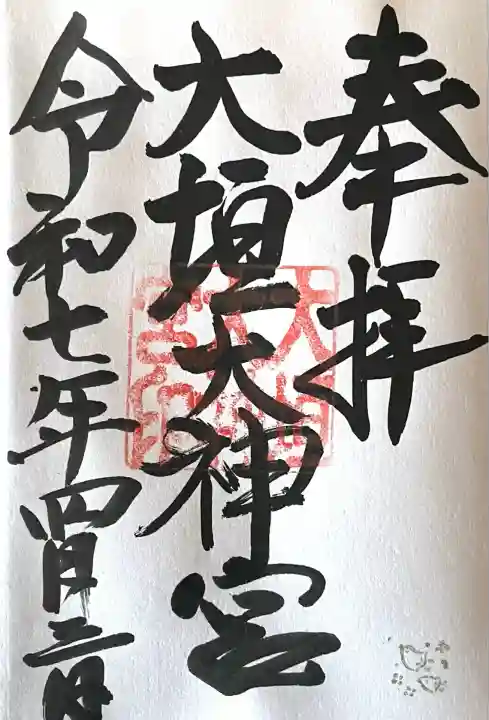 奉拝
大垣大神宮
令和七年四月三日